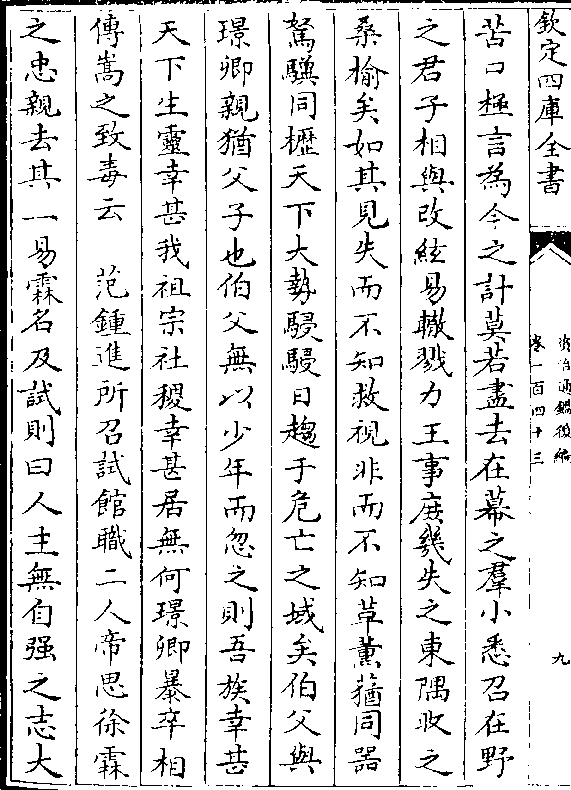 欽定四庫全書
資治通鑑後編
卷一百四十三
九
苦口極言為今之計莫若盡去在幕之羣小悉召在野
之君子相與改絃易轍戮力王事庶幾失之東隅收之
桑榆矣如其見失而不知救視非而不知草薰蕕同器
駑驥同櫪天下大勢駸駸日趨于危亡之域矣伯父與
璟卿親猶父子也伯父無以少年而忽之則吾族幸甚
天下生靈幸甚我祖宗社稷幸甚居無何璟卿暴卒相
傳嵩之致毒云　范鍾進所召試館職二人帝思徐霖
之忠親去其一易霖名及試則曰人主無自强之志大